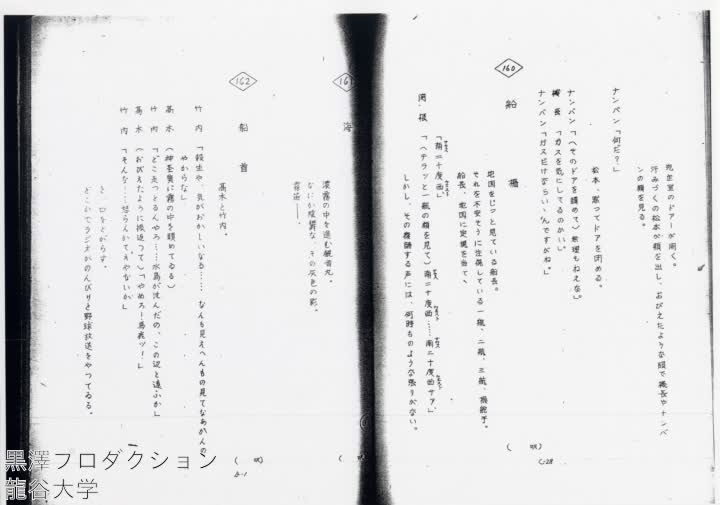 発生室のドアーが開く。
汗みづくの松本が顔を出し、おびえたような眼で機長やナンバ
ンの顔を見る。
ナンバン「何だ?」
松本、黙ってドアを閉める。
ナンバン「(そのドアを眺めて)無理もねえな」
機長「ガスを気にしてるのかい」
ナンバン「ガスだけならいゝんですがね。」
160
船橋
地図をじッと見ている船長。
それを不安そうに注視している一瓶、二瓶、三瓶、操舵手。
船長、地図に定規を当てゝ
「南二十度西」
「(チラッと一瓶の顔を見て)南二十度西……南二十度西サア」
しかし、その復誦する声には、何時ものような張りがない。
(呎)
C-28
16
海
濃霧の中を進む観音丸。
なにか陰鬱な、その灰色の影。
霧笛——。
(呎)
162
船首
高木と竹内。
竹内「殺生や、気がおかしいなる……なんも見えへんもの見てなあかんの
やからな」
高木(神妙に霧の中を眺めてゐる)
竹内「どこ走っとるんやろ……水島が沈んだの、この辺と違ふか」
高木(おびえたように振返って)「やめろ!馬鹿ッ!」
竹内「そんな…怒らんかてえやないか」
と、口をとがらす。
どこかでラジオがのんびりと野球放送をやってゐる。
(呎)
D-1
黒澤プロダクション
龍谷大学